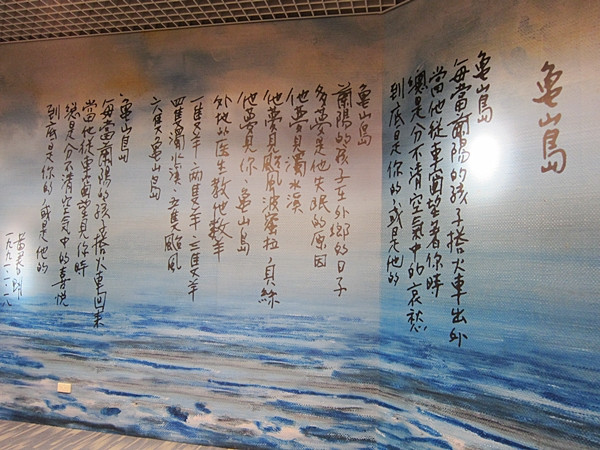 龜山島
龜山島
每當蘭陽的孩子搭火車出外
當他從車窗望著你時
總是分不清空氣中的哀愁
到底是你的，或是他的
龜山島
蘭陽的孩子在外鄉的日子
多夢是他失眠的原因
他夢見濁水溪
他夢見颱風波蜜拉，貝絲
他夢見你，龜山島
外地的醫生教他數羊
一隻羊，兩隻羊，三隻羊
四隻濁水溪，五隻颱風
六隻龜山島
龜山島
每當蘭陽的孩子搭火車回來
當他從車窗望見你時
總是分不清空氣中的喜悅
到底是你的，或是他的
黃春明